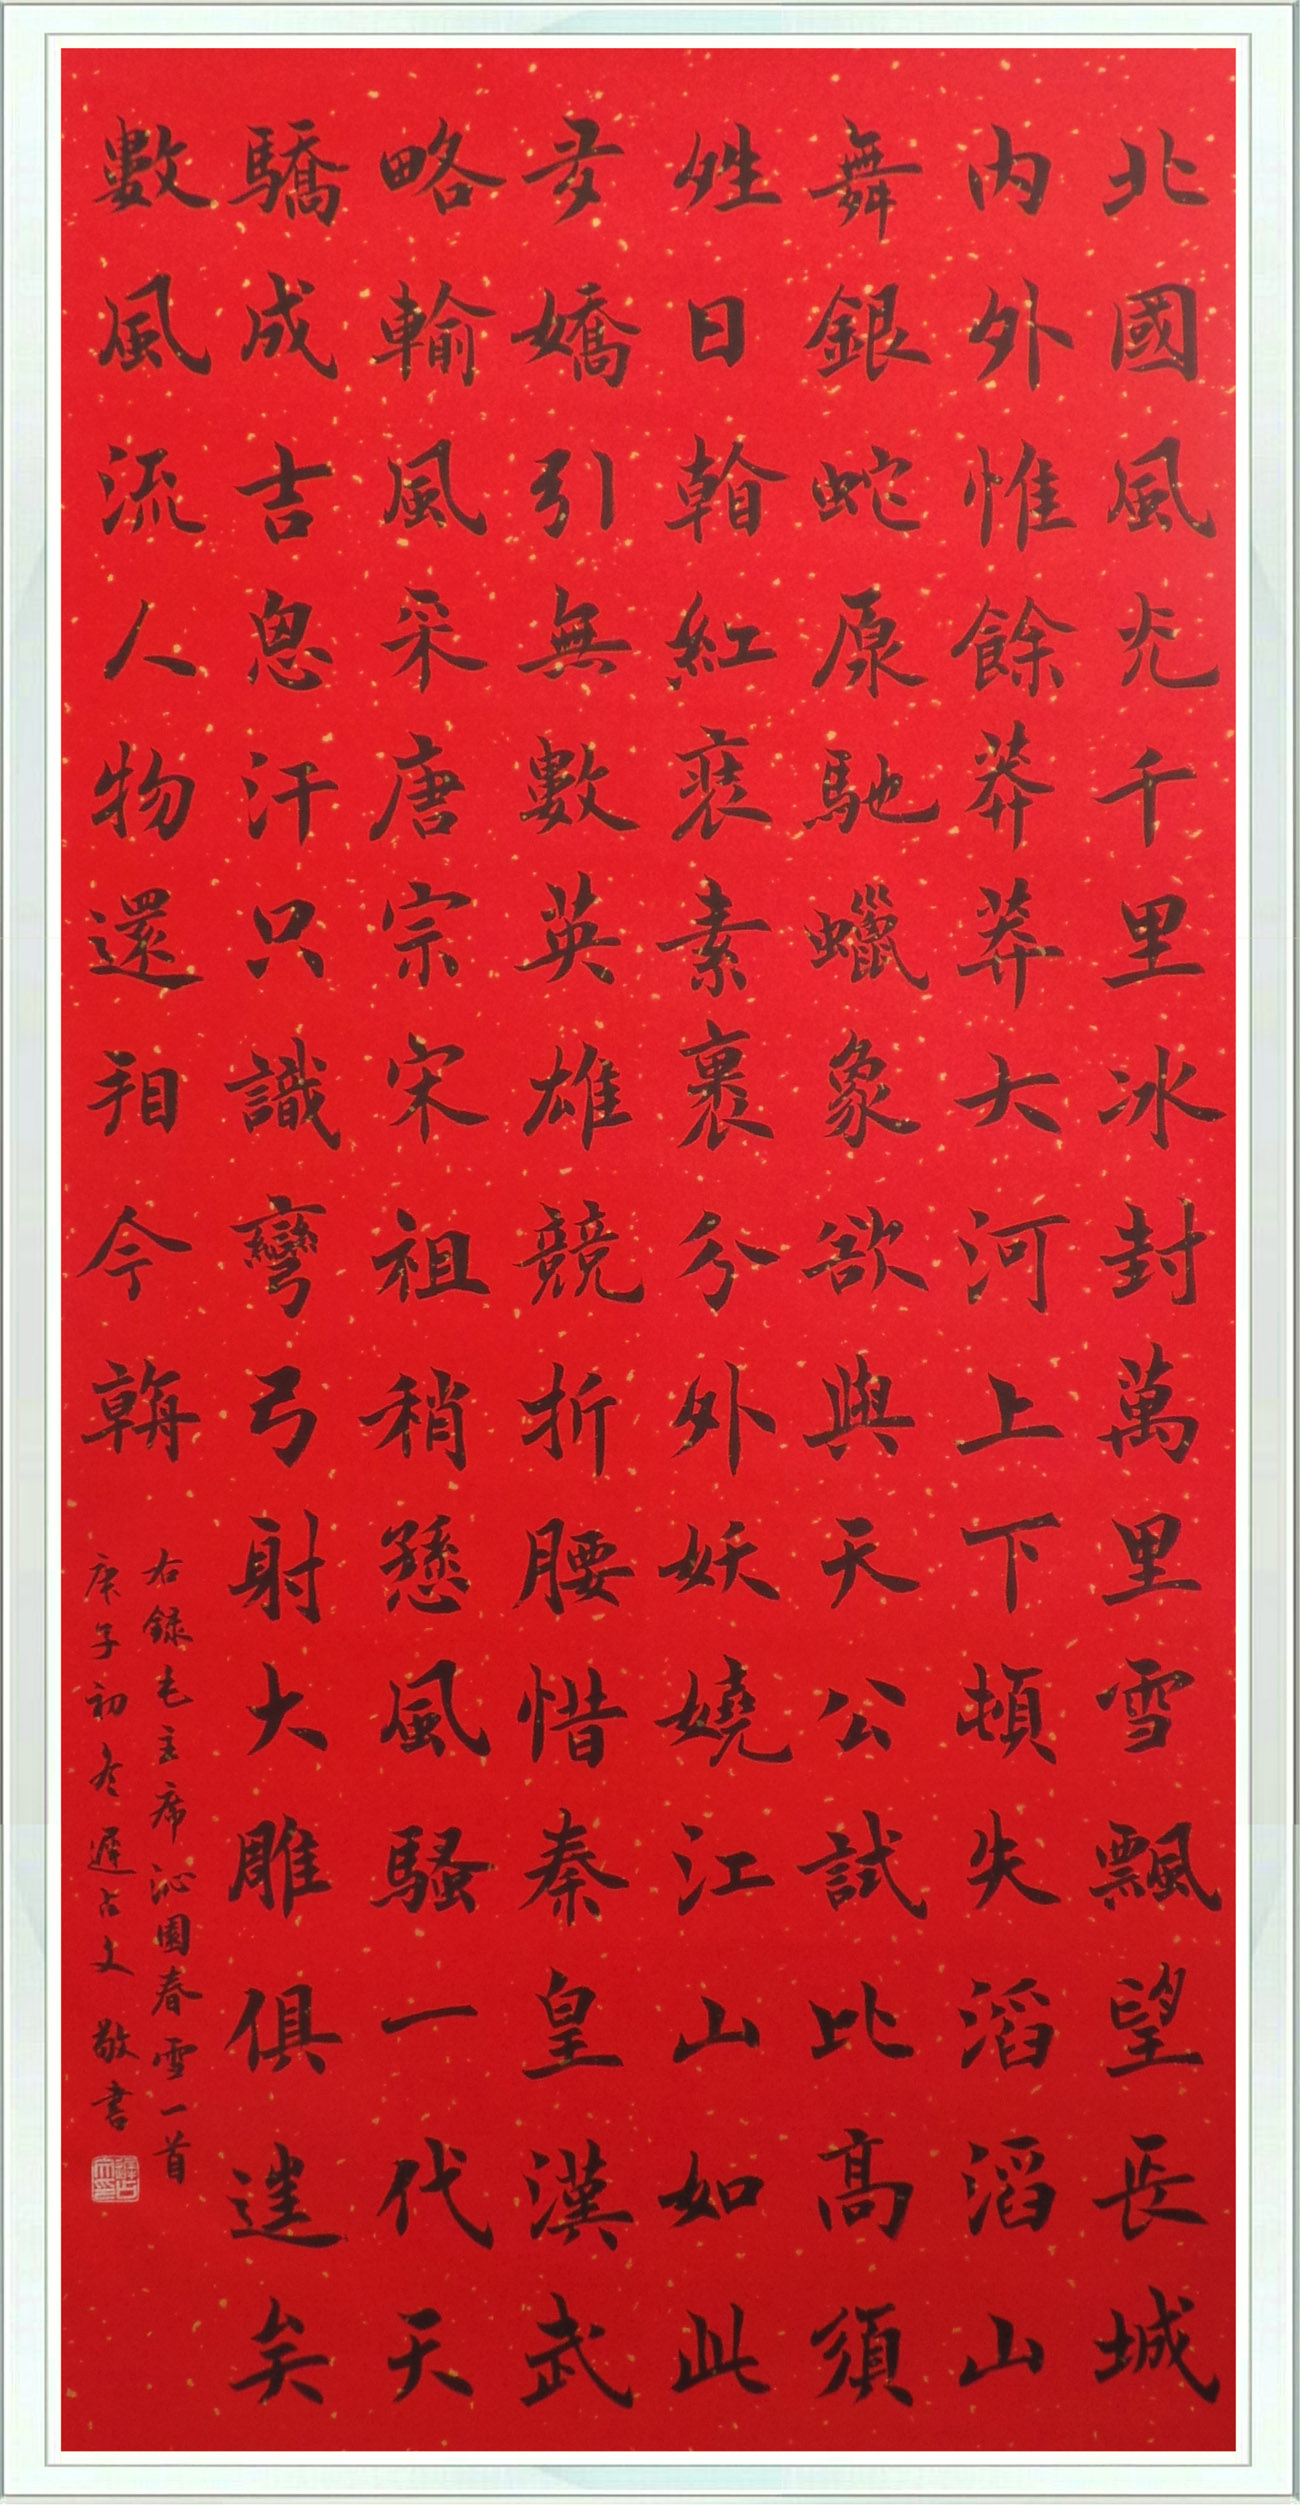 北國風光千里冰封萬里雪飄望長城
内外惟餘莽莽大河上下頓失滔滔山
舞銀蛇原馳蠟象欲與天公試比高須
姓日看紅裝素裹分外妖嬈江山如此
多嬌引無數英雄競折腰惜秦皇漢武
略輸風采唐宗宋祖稍愻風騷一代天
驕成吉思汗只識彎弓射大雕俱往矣
數風流人物還看今朝
右錄毛主席沁園春雪一首
庚子初冬遲占文敬書